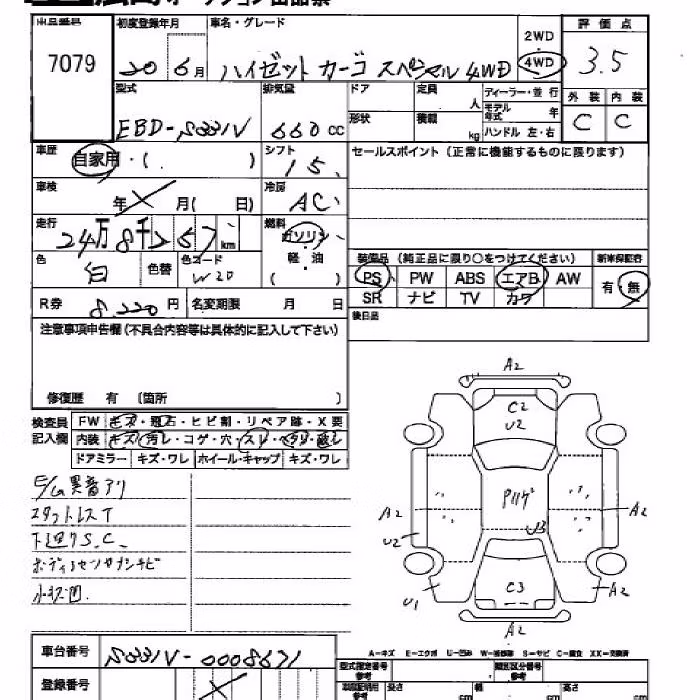 出品番号 初度登録年月 車名・グレード 2WD 評価点
7079 20 6月 ハイゼットカーゴ スペシャル 4WD 4WD 3.5
型式 排気量 ドア 定員 人 ディーラー・並行 外装 内装
EBD-S331V 660cc 形状 積載 kg モデル年式 年 ハンドル 左・右 C C
車歴 自家用・( ) シフト 15 セールスポイント(正常に機能するものに限ります)
車検 年 月( 日) 冷房 AC
走行 24万8千257km 燃料 ガソリン
色 白 色替 色コード W20 軽・油 ( )
装備品(純正品に限り○をつけてください) 新車保証書
PS PW ABS エアB AW 有・無
SR ナビ TV カワ
R券 8,220円 名変期限 月 日 後日品
注意事項申告欄(不具合内容等は具体的に記入して下さい)
修復歴 有 〔箇所 〕
検査員 FW キズ・飛石・ヒビ割・リペア跡・X要
記入欄 内装 キズ・汚レ・コゲ・穴・スレ・ヘタリ・破レ
ドアミラー キズ・ワレ ホイール・キャップ キズ・ワレ
E/G異音アリ
スタットレスT
下廻りS.C.
小キズ凹
A2
C2
U2
A2 A2
U2
C3
U1 A2
A2
A-キズ E-エクボ U-凹み W-補修跡 S-サビ C-腐食 XX-交換済
車台番号 S331V-0008671
型式指定番号 参考 類別区分番号 参考
登録番号
長さ cm 幅 cm 高さ cm